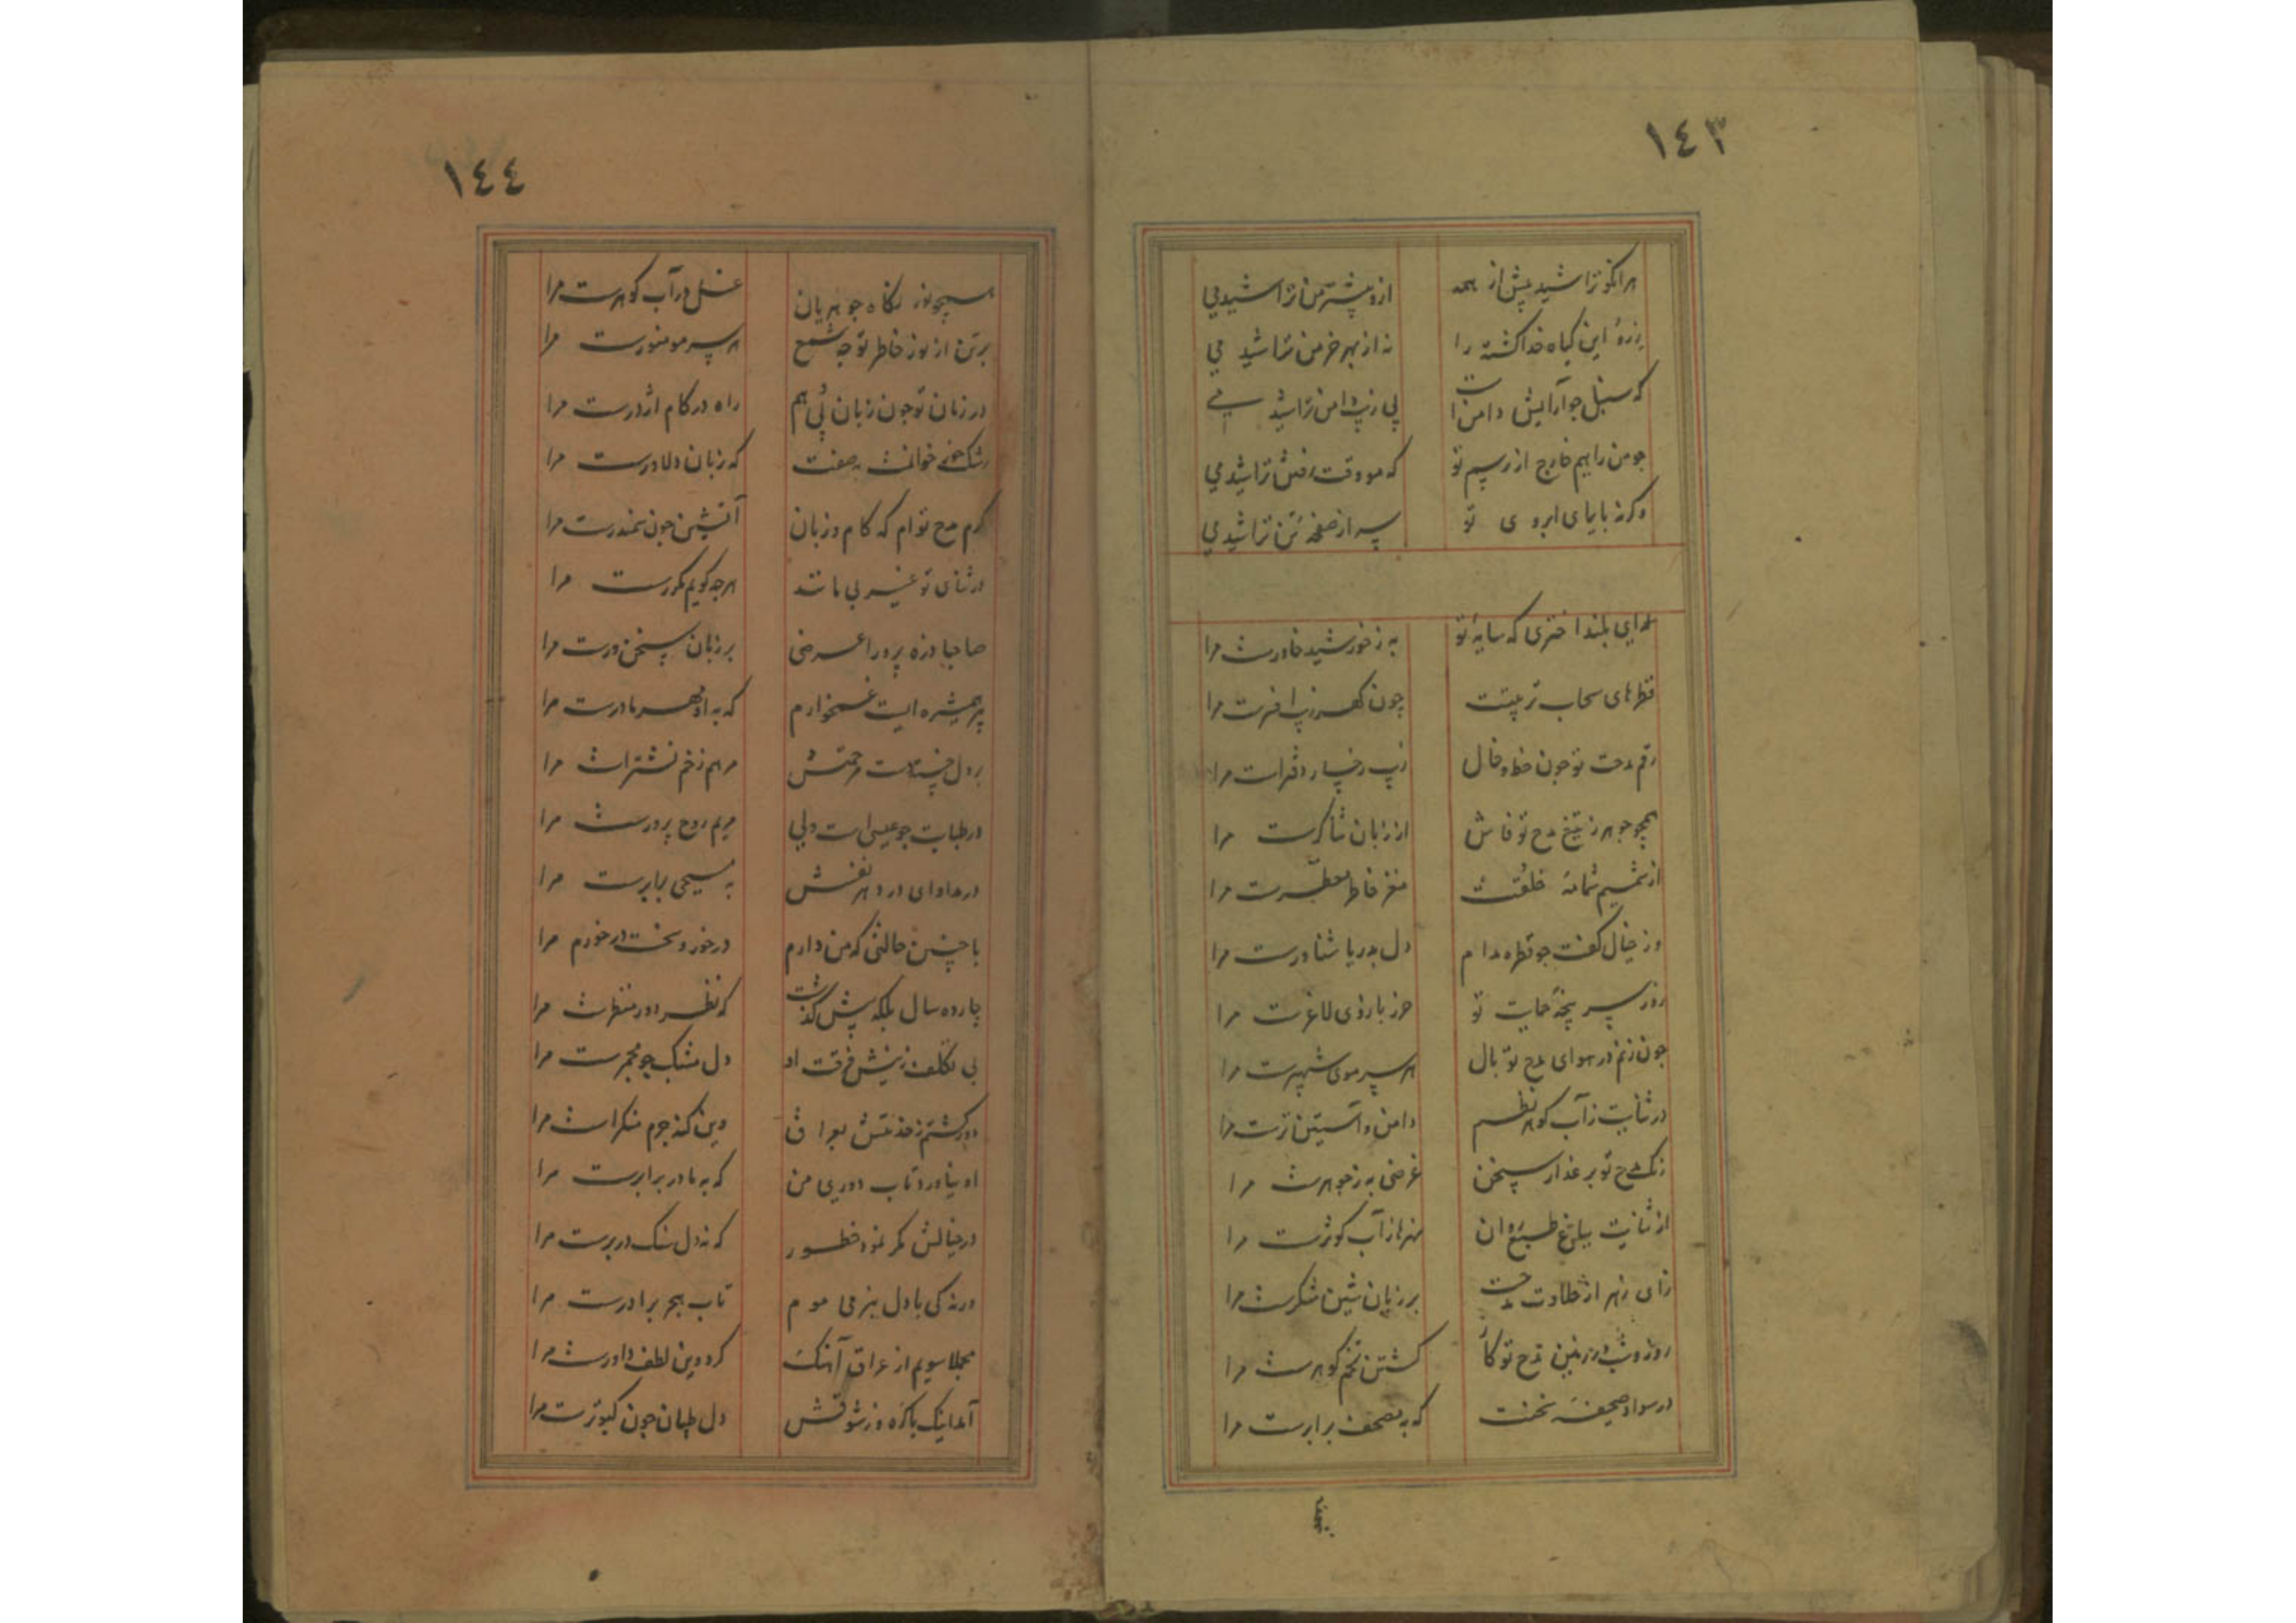 ١٤٣
هرانکو تراشید پیش از همه
ازو پیشتر من تراشیدمی
این کیاه خدا کشته را
نه از بهر خرمن تراشیدمی
که سنبل جو آرایش دامن است
پی زیب دامن تراشیدمی
جو من را بهم خارج از رسم تو
که مو وقت رفتن تراشیدمی
وکرنه بایمای ابروی تو
سر از صفحه تن تراشیدمی
ای بلند اختری که سایه تو
به ز خورشید خاورست مرا
قطرهای سحاب تربیتت
چون کهر زیب افسرست مرا
رقم مدحت تو جون خط و خال
زیب رخسار دفترست مرا
همچو جوهر ز تیغ مدح تو فاش
از زبان ثناکرست مرا
از شمیم شمامه خلقت
مغز خاطر معطرست مرا
وز خیال کفت جو قطره مدام
دل بدریا شناورست مرا
زور سر پنجه حمایت تو
حرز بازوی لاغرست مرا
جون زنم در هوای مدح تو بال
هر سر موی شهپرست مرا
در ثنایت ز آب کوهر نظم
دامن و آستین ترست مرا
رنک مدح تو بر عذار سخن
غرضی به ز جوهرست مرا
از ثنایت بباغ طبع روان
نهرها ز آب کوثرست مرا
زای زهر از حلاوت مدحت
بر زبان شین شکرست مرا
روز و شب در زمین مدح تو کار
کشتن تخم کوهرست مرا
در سواد صحیفه سخنت
که بمصحف برابرست مرا
١٤٤
همچو از نکاه جوهریان
غسل در آب کوهرست مرا
بر تن از نور خاطر تو جه شمع
هر سر مو منورست مرا
در زمان تو جون زبان پی هم
راه در کام اژدرست مرا
که زبان دلاورست مرا
کرم مدح توام که کام و زبان
آتشین جون سمندرست مرا
در ثنای تو غیر بی مانند
هرجه کویم مکررست مرا
صاحبا ذره پرورا عرضی
بر زبان سخن ورست مرا
پیر همشیره ایست غمخوارم
که به او مهر مادرست مرا
مرهم زخم نشترست مرا
در طبابت جو عیسی است ولی
مریم روح پرورست مرا
در مداوای درد هر نفسش
به مسیحی برابرست مرا
با چنین حالتی که من دارم
درخور و سخت درخورم مرا
چارده سال بلکه بیش کذشت
که نظر دور منظرست مرا
بی تکلف ز بیش فرقت او
دل مشبک چو مجمرست مرا
دور کشتم ز خدمتش بعراق
وین کنه جرم منکرست مرا
او نیاورد تاب دوری من
که به مادر برابرست مرا
در خیالش مکر نمود خطور
که نه دل سنک در برست مرا
ورنه کی با دل بنرمی موم
تاب هجر برادرست مرا
مجملا سویم از عراق آهنک
کرد وین لطف داورست مرا
آمد اینک باکره وز شوقش
دل طپان چون کبوترست مرا